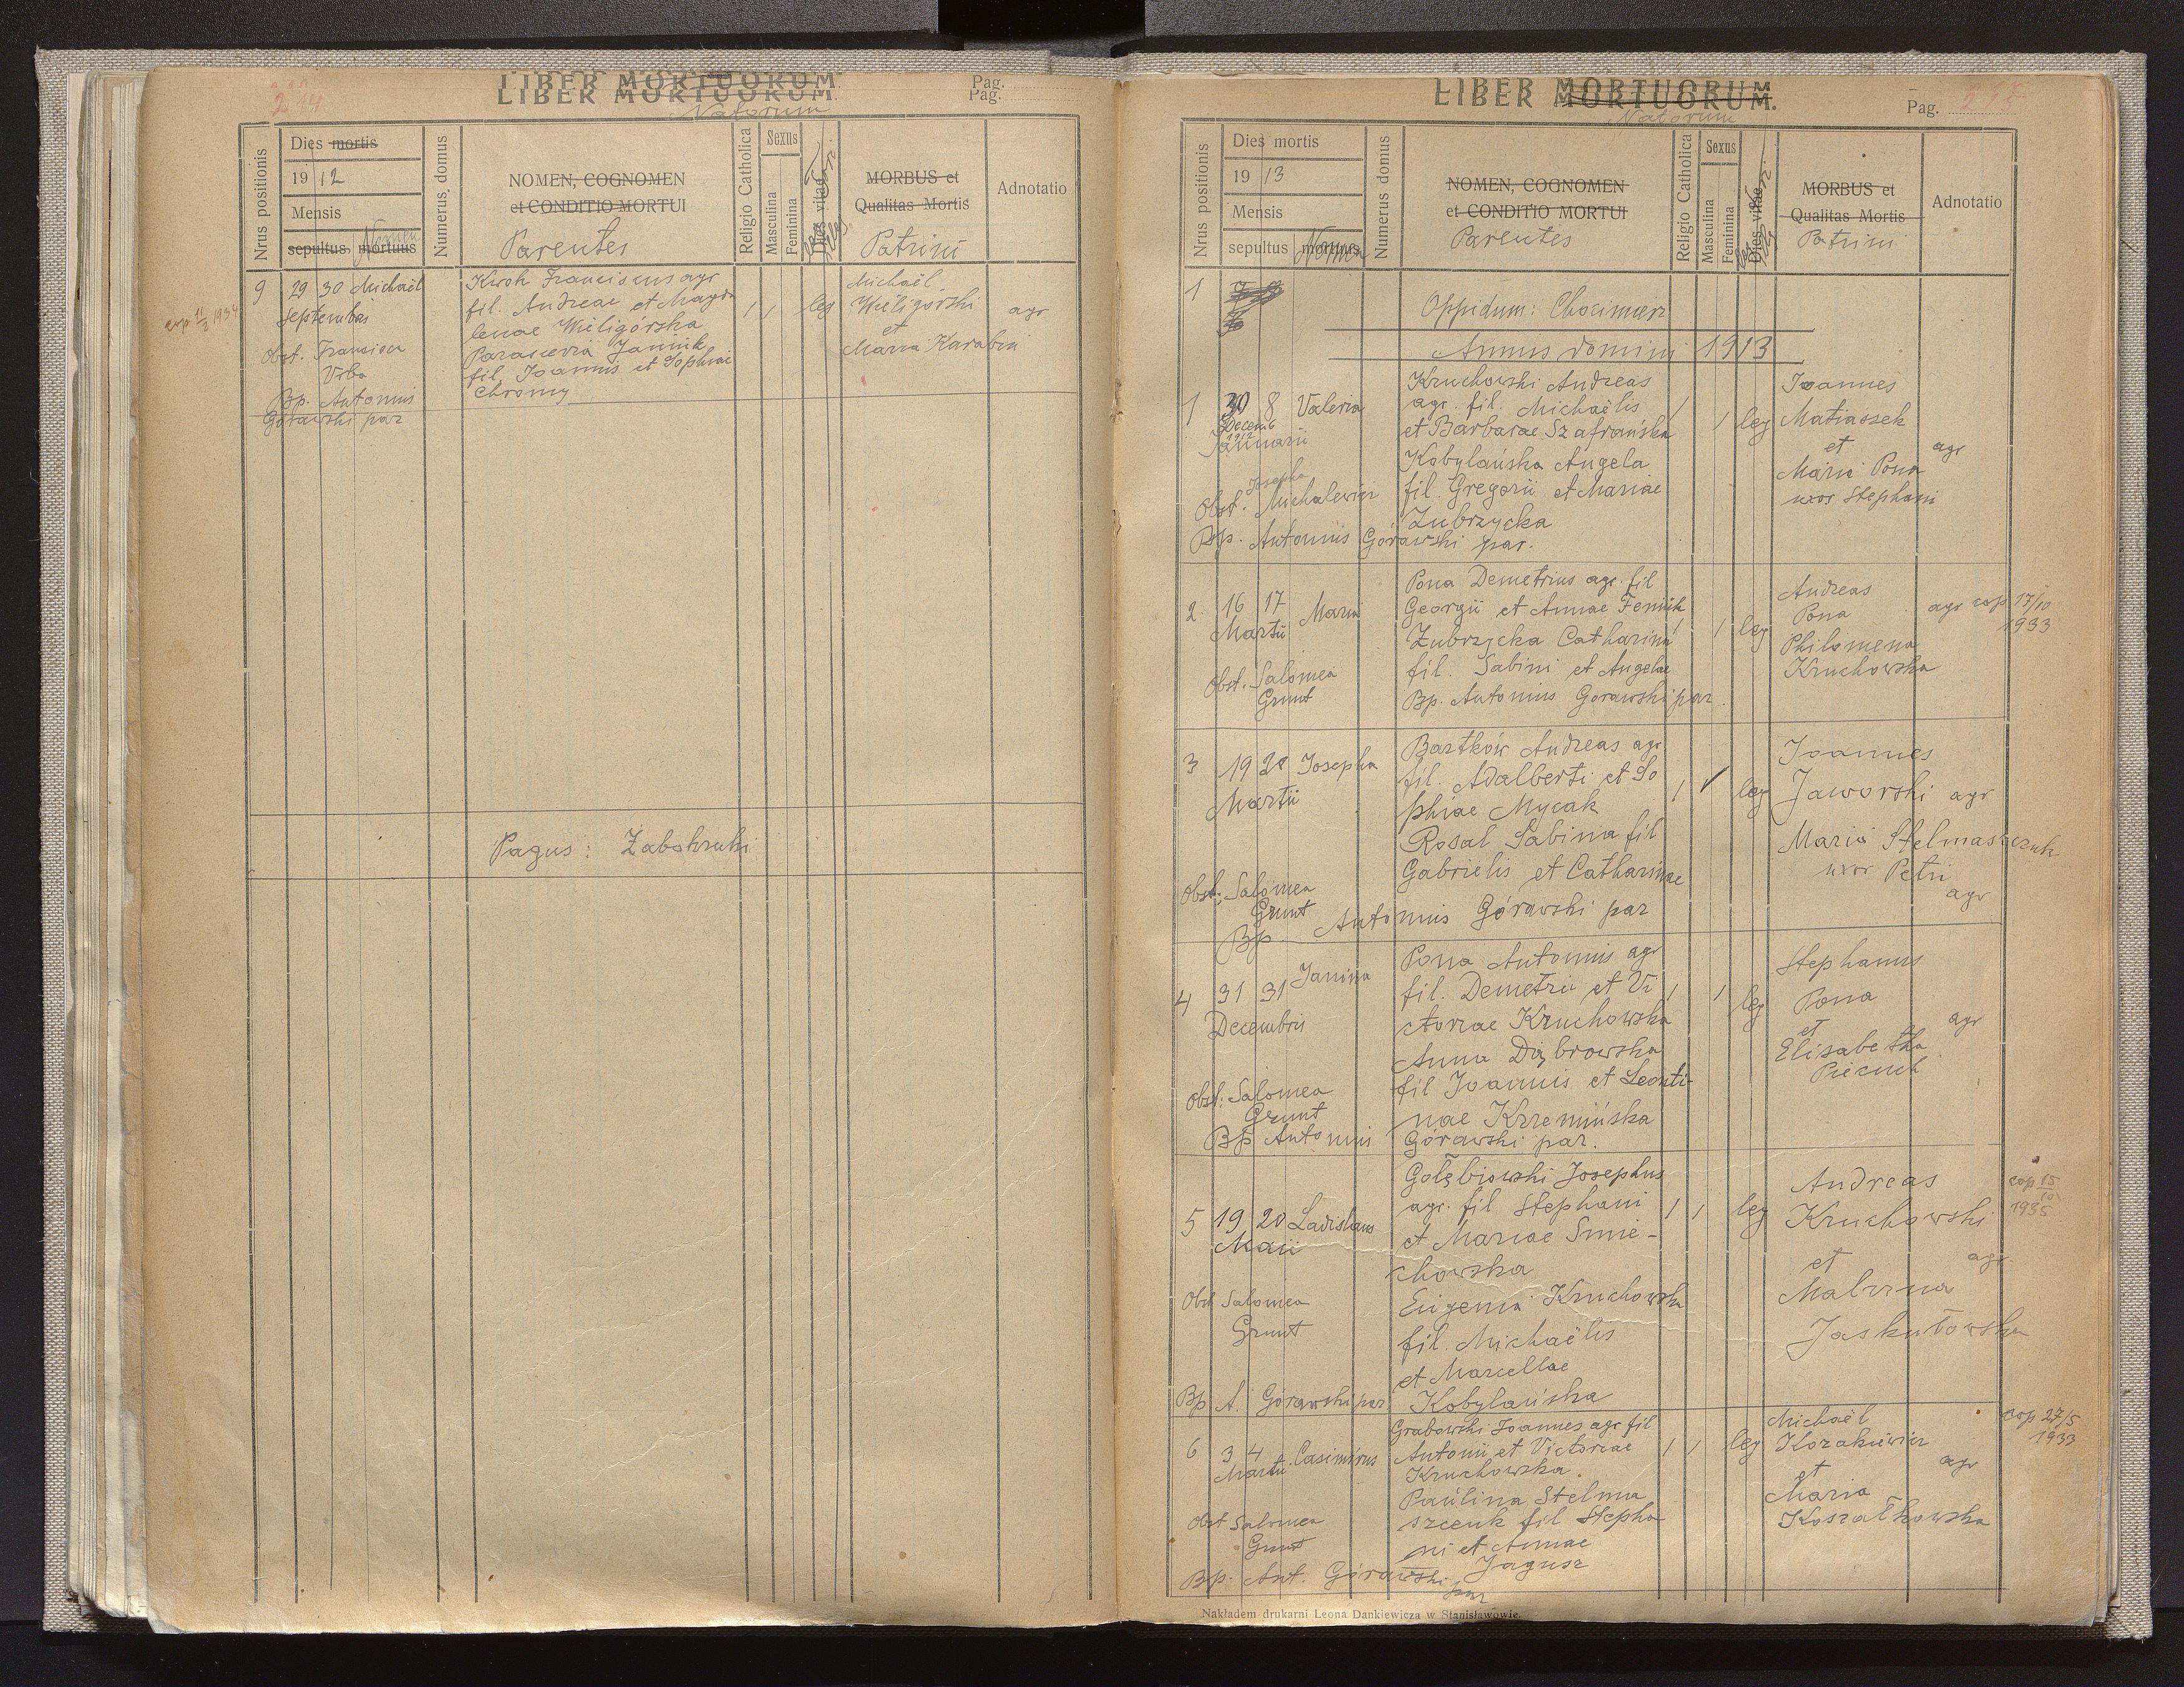 214
LIBER MORTUORUM.
LIBER MORTUORUM.
Natorum
Pag.
Pag.
Nrus positionis
Dies mortis
19 12
Mensis
sepultus mortuus Nomen
Numerus domus
NOMEN, COGNOMEN
et CONDITIO MORTUI
Parentes
Religio Catholica
Sexus
Masculina
Feminina
Dies vitae
MORBUS et
Qualitas Mortis
Patrini
Adnotatio
cop 11/2 1934
9 29 30 Michaël
Septembris
Obst. Francisca
Urba
Bp. Antonius
Górawski par
Kwok Franciscus agr
fil. Andreae et Magda
lenae Wieligórska
Parascevia Jannik
fil. Joannis et Sophiae
Chromy
1 1 leg
Michaël
Wieligórski
et
Maria Karabin
agr
Pagus: Żabokruki
LIBER MORTUORUM.
LIBER MORTUORUM.
Natorum
Pag. 215
Nrus positionis
Dies mortis
19 13
Mensis
sepultus mortuus Nomen
Numerus domus
NOMEN, COGNOMEN
et CONDITIO MORTUI
Parentes
Religio Catholica
Sexus
Masculina
Feminina
Dies vitae
MORBUS et
Qualitas Mortis
Patrini
Adnotatio
1
Oppidum: Chocimierz
Annus Domini 1913
1 30 8 Valeria
Decemb
1912
Januarii
Josepha
Obst. Michalewicz
Bp. Antonius Górawski par.
Kruchowski Andreas
agr. fil. Michaëlis
et Barbarae Szafrańska
Kobylańska Angela
fil. Gregorii et Mariae
Zubrzycka
1 1 leg
Joannes
Matiaszek
et
Maria Pona
uxor Stephani
agr
2 16 17 Maria
Martii
Obst. Salomea
Grunt
Pona Demetrius agr. fil
Georgii et Annae Feniuk
Zubrzycka Catharina
fil. Sabini et Angelae
Bp. Antonius Górawski par.
1 1 leg
Andreas
Pona
Philomena
Kruchowska
agr cop 17/10
1933
3 19 20 Josepha
Martii
Obst: Salomea
Grunt
Bp. Antonius Górawski par
Bartków Andreas agr
fil. Adalberti et So
phiae Mycak
Rosal Sabina fil
Gabrielis et Catharinae
1 leg
Joannes
Jaworski agr
Maria Stelmaszczuk
uxor Petri
agr
4 31 31 Janina
Decembris
Obst: Salomea
Grunt
Bp Antonius
Pona Antonius agr
fil. Demetrii et Vi
ctoriae Kruchowska
Anna Dąbrowska
fil Joannis et Leonti-
nae Krzemińska
Górawski par.
1 1 leg
Stephanus
Pona
et
Elisabetha
Pieczuch
agr
5 19 20 Ladislaus
Maii
Obst Salomea
Grunt
Bp A. Górawski par
Gołębiowski Josephus
agr. fil Stephani
et Mariae Smie-
chowska
Eugenia Kruchowska
fil. Michaëlis
et Marcellae
Kobylańska
1 1 leg
Andreas
Kruchowski
et
Malvina
Jaskułowska
agr
cop 15/10
1935
6 3 4 Casimirus
Martii
Obst Salomea
Grunt
Bp. Ant. Górawski par
Grabowski Joannes agr fil
Antonii et Victoriae
Kruchowska.
Paulina Stelma
szczuk fil Stepha
ni et Annae
Jagusz
1 1 leg
Michaël
Kozakiewicz
et
Maria
Koszałkowska
agr
cop 27/5
1933
Nakładem drukarni Leona Dankiewicza w Stanisławowie.